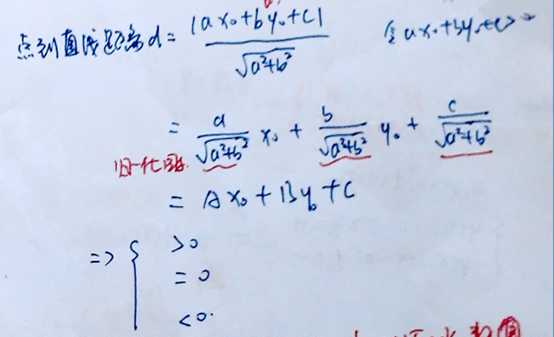 点到直线距离d = |ax₀+by₀+c| / √(a²+b²) 令ax₀+by₀+c>0
= a/√(a²+b²) x₀ + b/√(a²+b²) y₀ + c/√(a²+b²)
归一化因子
= Ax₀ + By₀ + C
=> { >0
= 0
<0.